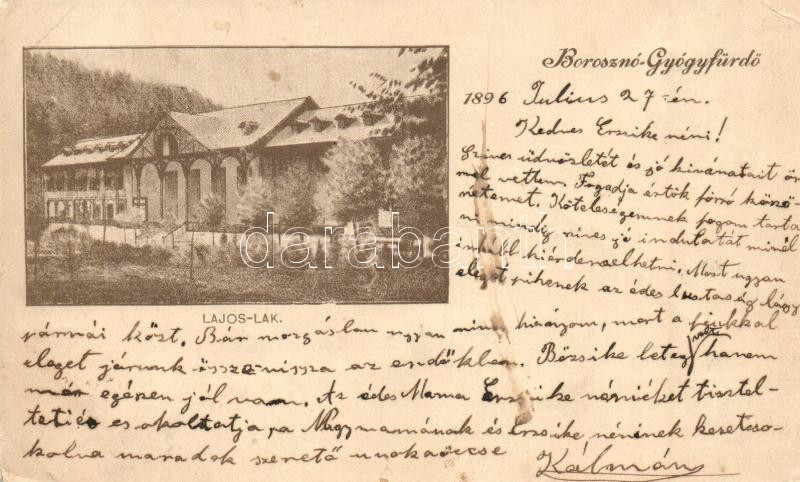 Borosznó-Gyógyfürdő
1896 Julius 27-én.
Kedves Erzsike néni!
Szives üdvözletét és jó kivánatait öröm-
mel vettem. Fogadja értök forró köszö-
netemet. Kötelességemnek fogom tarta
ni mindig nines jó indulatát minél
inkább kiérdemelhetni. Most ugyan
eleget pihenek az édes lustaság lágy
LAJOS-LAK.
párnái közt. Bár mozgásban ugyan nincs hiányom, mert a fiukkal
eleget járunk össze-vissza az erdőkben. Bözsike beteg volt hanem
már egészen jól van. Az édes Mama Erzsike nénéket tisztel-
teti és csokoltatja, a Nagymamának és Erzsike nénének kezetcso-
kolva maradok szerető unokaöccse
Kálmán
darabanth